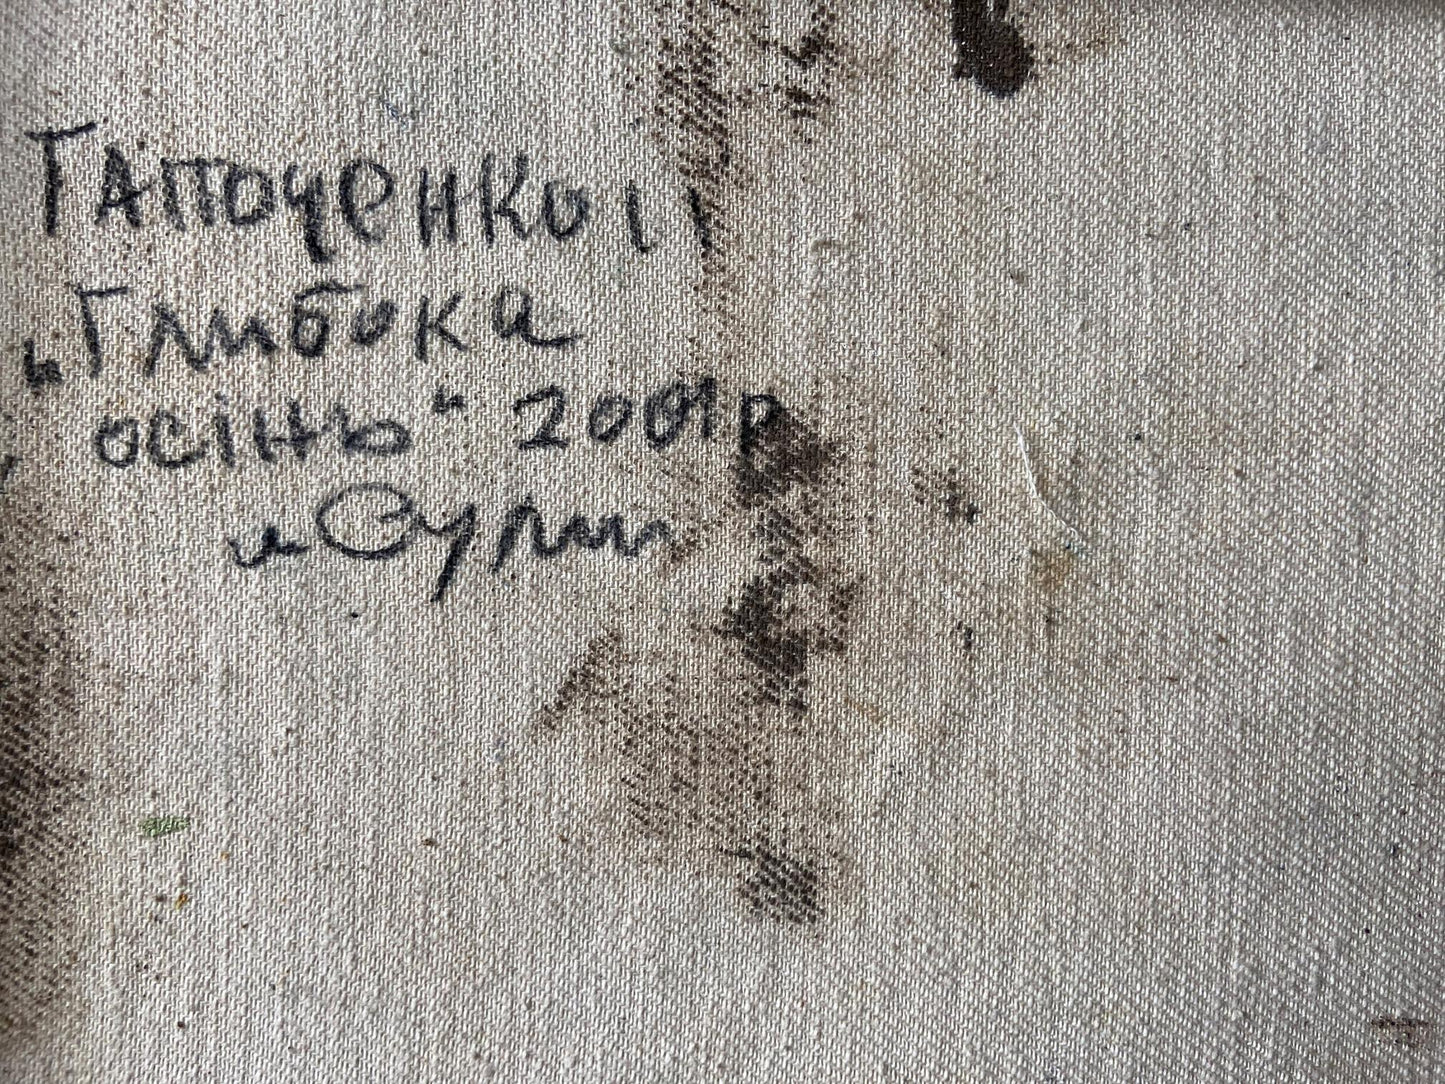 Гапоченко І І
„Глибока
осінь“ 2001р
м Суми